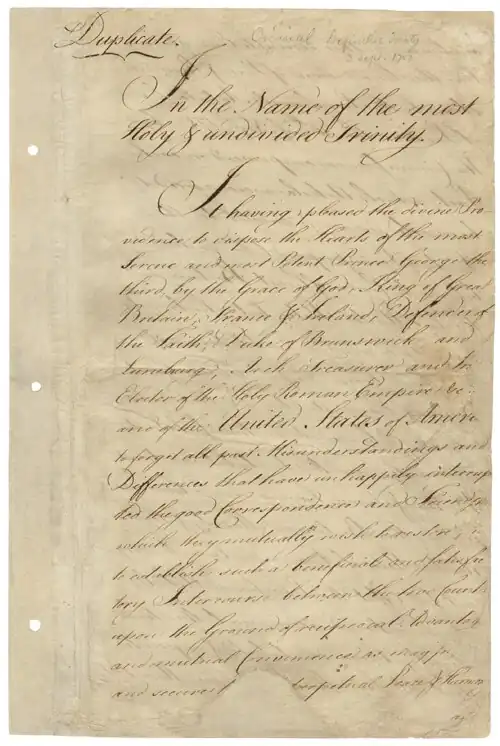 Duplicate.
Original Definitive Treaty
3 Sept. 1783
In the Name of the most
Holy & undivided Trinity.
It having pleased the divine Pro
vidence to dispose the Hearts of the most
Serene and most Potent Prince George the
third, by the Grace of God, King of Great
Britain, France & Ireland, Defender of
the Faith, Duke of Brunswick and
Lunebourg, Arch Treasurer and
Elector of the Holy Roman Empire &c.
and of the United States of Ameri
to forget all past Misunderstandings and
Differences that have unhappily interrup
ted the good Correspondence and Friendship
which they mutually wish to restore;
to establish such a beneficial and satisfac
tory Intercourse between the two Count
upon the Ground of reciprocal Advantag
and mutual Convenience as may
and secure perpetual Peace & Harmony